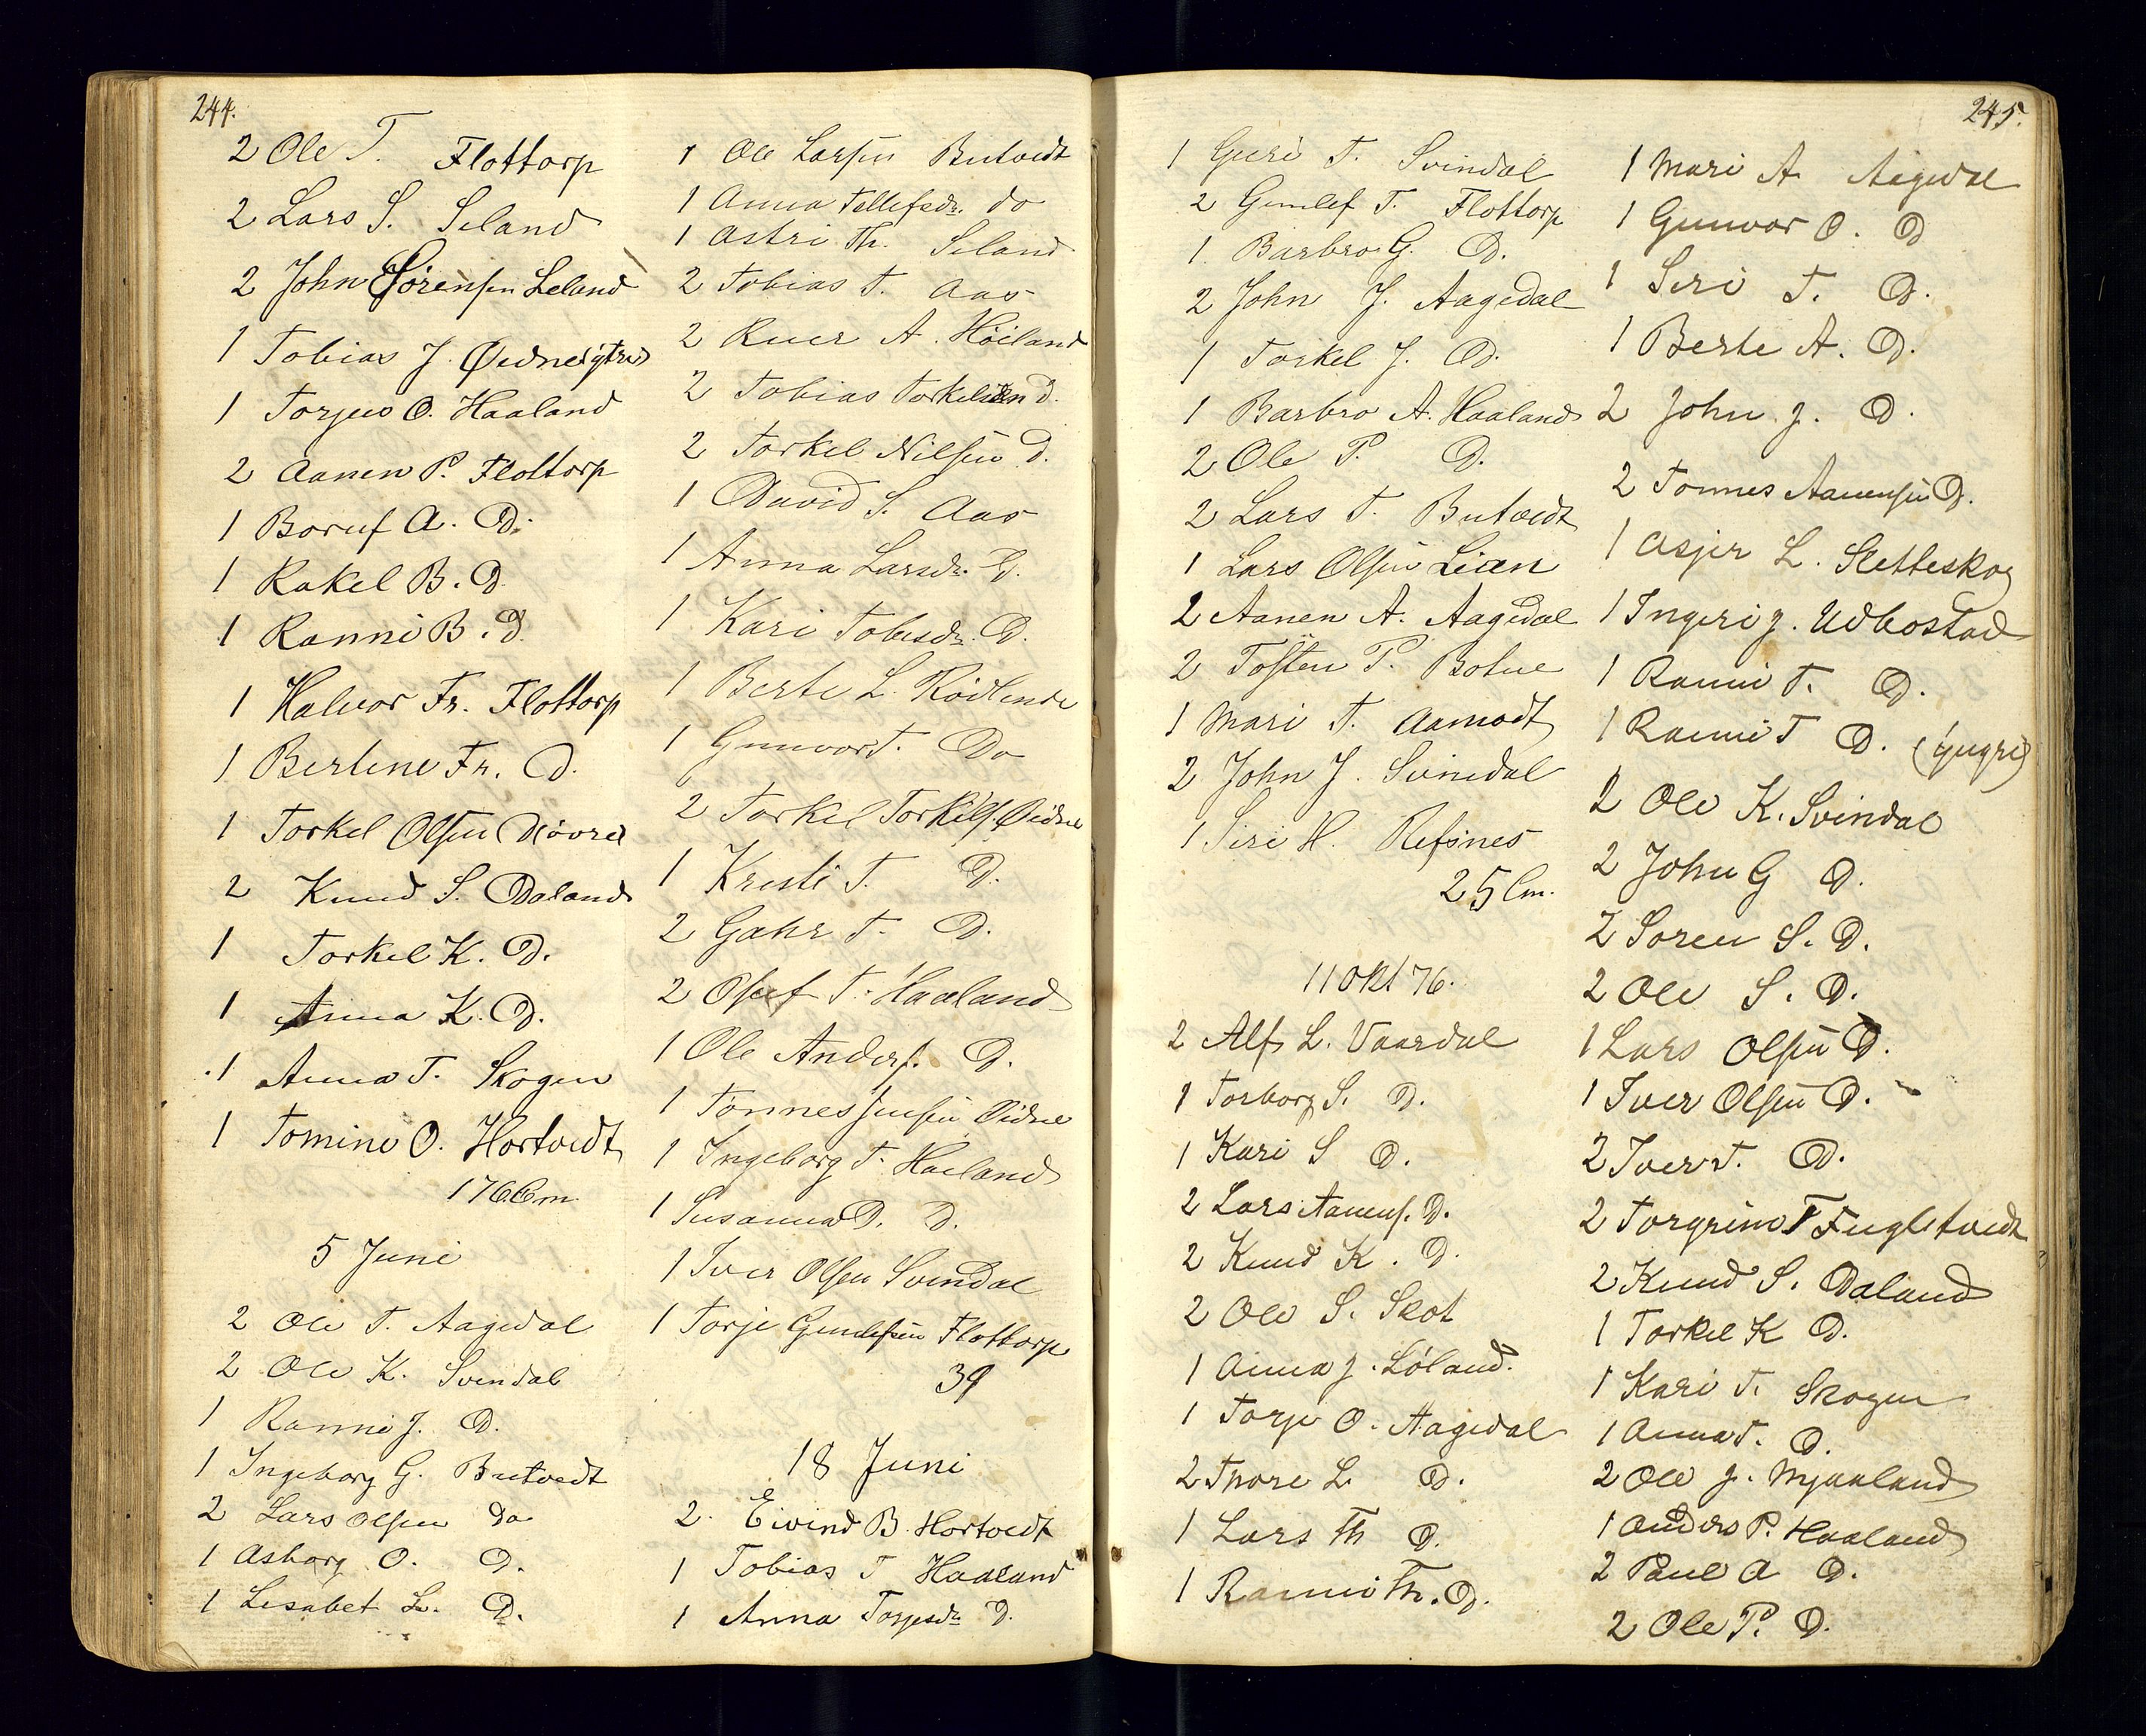 244.
2 Ole T. Flottorp
2 Lars S. Seland
2 John Sörensen Seland
1 Tobias J. Øidne
1 Torjus O. Haaland
2 Aanen P. Flottorp
1 Boruf A. D.
1 Rakel B. D.
1 Ranni B. D.
1 Halvor Fr. Flottorp
1 Bertine Fr. D.
1 Torkel Olsen
2 Knud S. Daland
1 Torkel K. D.
1 Anna K. D.
1 Anna T. Skogen
1 Tomine O. Hortvedt
17 6 Cm
5 Juni
2 Ole T. Aagedal
2 Ole K. Svindal
1 Ranni J. D.
1 Ingeborg G. Butvedt
2 Lars Olsen do
1 Asborg O. D.
1 Lisabet L. D.
1 Ole Larsen Butvedt
1 Anna Tellefsdr. do
1 Astri Th. Seland
2 Tobias T. Aas
2 Iver A. Höiland
2 Tobias Torkelsen d.
2 Torkel Nilsen d.
1 David S. Aas
1 Anna Larsdr. D.
1 Kari Tobisdr. D.
1 Berte L. Rödlende
1 Gunvor T. Do
2 Torkel Torkilss. Øidne
1 Kristi T. D.
2 Gahr T. D.
2 Osuf T. Haaland
1 Ole Anders. D.
1 Tönnes Jensen Øidne
1 Ingeborg T. Haaland
1 Susanna D. D.
1 Iver Olsen Svindal
1 Torje Gunlefsen Flottorp
39
18 Juni
2. Eivind B. Hortvedt
1 Tobias T Haaland
1 Anna Torjesdr D.
245.
1 Guri T. Svindal
2 Gunlef T. Flottorp
1. Barbro G. D.
2 John J. Aagedal
1 Torkel J. D.
1 Barbro A. Haaland
2 Ole P. D.
2 Lars T. Butvedt
1 Lars Olsen Lian
2 Aanen A. Aagedal
2 Tosten P. Botne
1 Mari T. Aamodt
2 John J. Svindal
1 Siri H. Refsnes
25 Cm.
11 Okt 76.
2 Alf L. Vaardal
1 Torborg S. D.
1 Kari S D.
2 Lars Aanens. D.
2 Knud K. D.
2 Ole S. Skot
1 Anna J. Löland.
1 Torje O. Aagedal
2 Thore L D.
1 Lars Th D.
1 Ranni Th. D.
1 Mari A Aagedal
1 Gunvor O. D
1 Siri T. D.
1 Berte A. D.
2 John J. D.
2 Tönnes Aanensen D.
1 Asjer L. Sletteskog
1 Ingeri J. Udbostad
1 Ranni T. D.
1 Ranni T D. (yngre)
2 Ole K. Svindal
2 John G D.
2 Soren S. D.
2 Ole S. D.
1 Lars Olsen D.
1 Iver Olsen D.
2 Iver T. D.
2 Torgrim T Fugletvedt
2 Knud S. Daland
1 Torkel K D.
1 Kari T. Skogen
1 Anna T. D.
2 Ole J. Mjaaland
1 Anders P. Haaland
2 Paul A D.
2 Ole P. D.